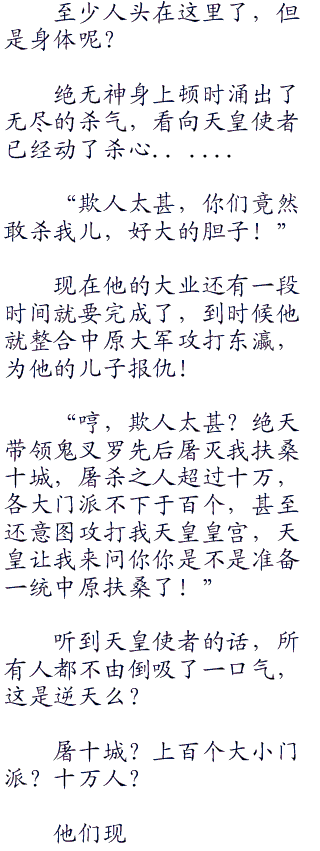 至少人头在这里了，但
是身体呢？
绝无神身上顿时涌出了
无尽的杀气，看向天皇使者
已经动了杀心．．．．．．
“欺人太甚，你们竟然
敢杀我儿，好大的胆子！”
现在他的大业还有一段
时间就要完成了，到时候他
就整合中原大军攻打东瀛，
为他的儿子报仇！
“哼，欺人太甚？绝天
带领鬼叉罗先后屠灭我扶桑
十城，屠杀之人超过十万，
各大门派不下于百个，甚至
还意图攻打我天皇皇宫，天
皇让我来问你你是不是准备
一统中原扶桑了！”
听到天皇使者的话，所
有人都不由倒吸了一口气，
这是逆天么？
屠十城？上百个大小门
派？十万人？
他们现